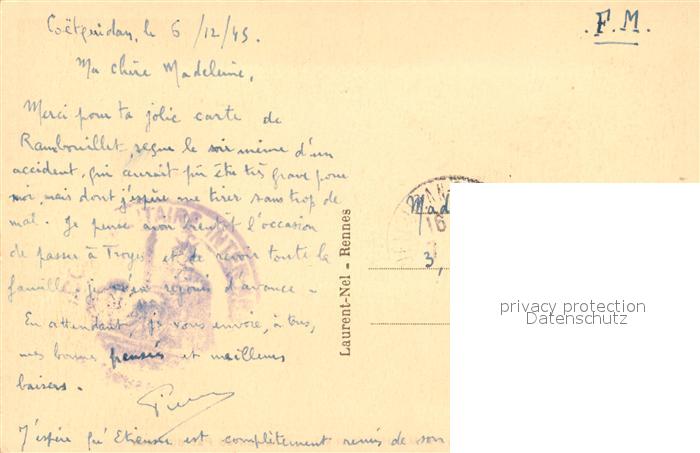 Coëtquidan, le 6/12/45.
. F. M.
Ma chère Madeleine,
Merci pour ta jolie carte de
Rambouillet, reçue le soir même d'un
accident, qui aurait pu être très grave pour
moi, mais dont j'espère me tirer sans trop de
mal. Je pense avoir bientôt l'occasion
de passer à Troyes et de revoir toute la
famille. je m'en réjouis d'avance -
En attendant, je vous envoie, à tous,
mes bonnes pensées et meilleurs
baisers.
Pierre
J'espère qu'Etienne est complètement remis de son
Laurent-Nel - Rennes
Mad
3,
16
privacy protection
Datenschutz